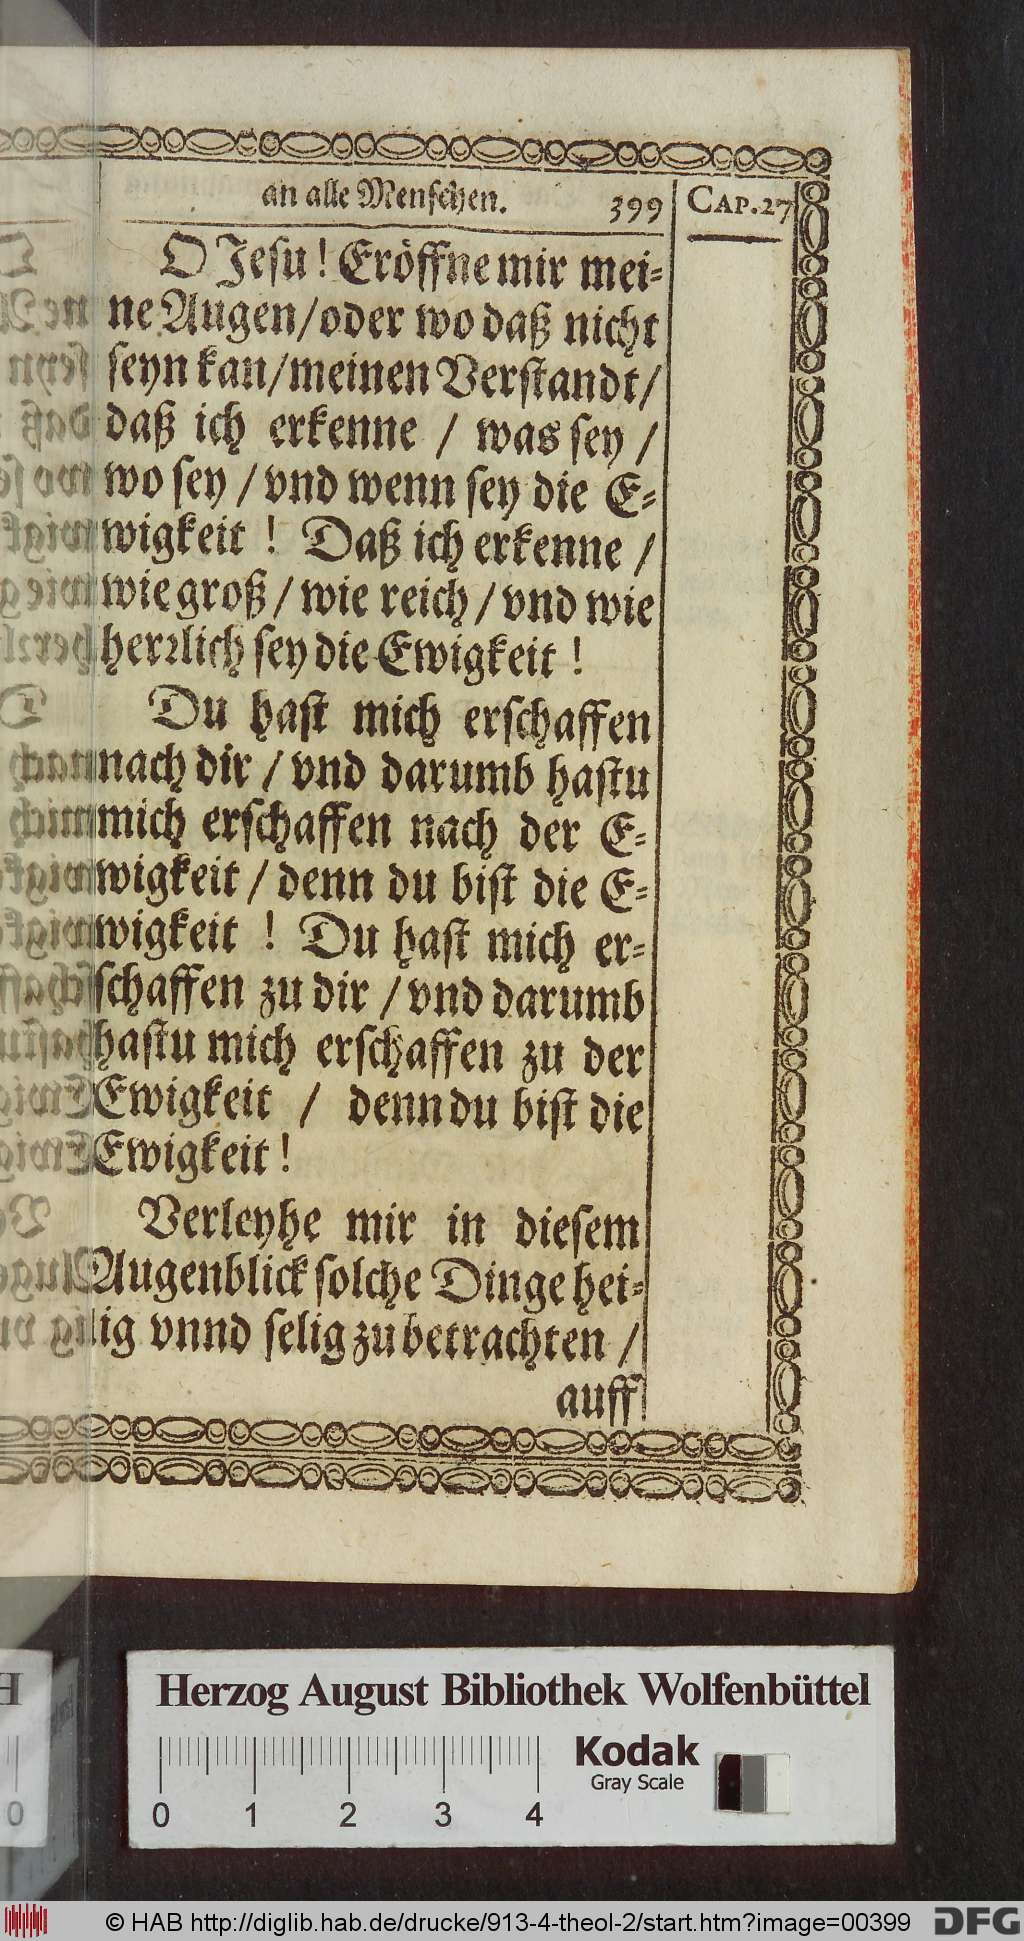 an alle Menschen. 399 CAP. 27
O Jesu! Eröffne mir mei=
ne Augen/oder wo daß nicht
seyn kan/meinen Verstandt/
daß ich erkenne / was sey /
wo sey / vnd wenn sey die E=
wigkeit ! Daß ich erkenne /
wie groß / wie reich / vnd wie
herꝛlich sey die Ewigkeit !
Du hast mich erschaffen
nach dir / vnd darumb hastu
mich erschaffen nach der E=
wigkeit / denn du bist die E=
wigkeit ! Du hast mich er=
schaffen zu dir / vnd darumb
hastu mich erschaffen zu der
Ewigkeit / denn du bist die
Ewigkeit !
Verleyhe mir in diesem
Augenblick solche Dinge hei=
lig vnnd selig zu betrachten /
auff
Herzog August Bibliothek Wolfenbüttel
Kodak
Gray Scale
0 1 2 3 4
© HAB http://diglib.hab.de/drucke/913-4-theol-2/start.htm?image=00399
DFG